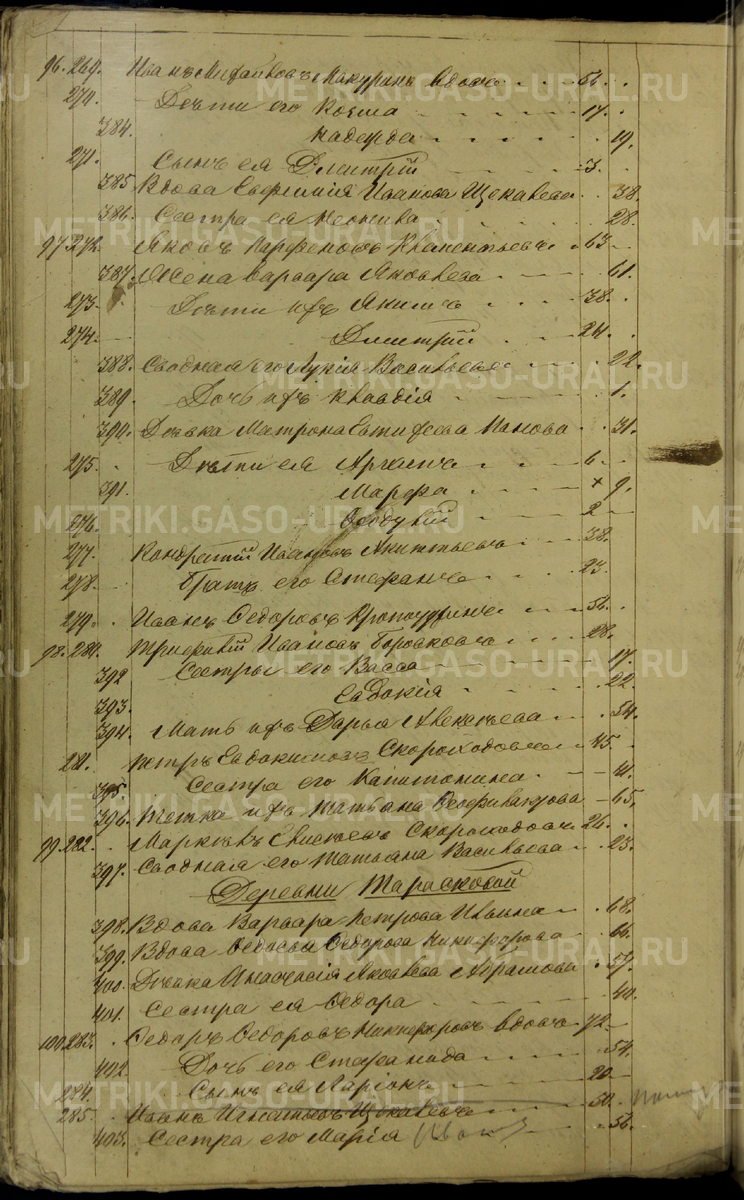 96. 269. Иванъ Михайловъ Макуринъ вдовъ 56.
270. Дѣти его Козма 17.
384. Надежда 19.
271. Сынъ ея Дмитрій 3.
385 Вдова Евфимія Иванова Щекалева 38.
386. Сестра ея Неонила 28.
97. 272. Яковъ Парфеновъ 63
387. Жена Варвара Яковлева 61.
273. Дѣти ихъ Якимъ 38.
274. Дмитрій 24.
388. Сводная его Лукія Васильева 22.
389. Дочь ихъ Клавдія 1.
390. Дѣвка Матрона Евтифеева Панова 31.
275. Дѣти ея 6.
391. Марфа + 9.
276. 2
277. Кондратій Ивановъ 38.
278. Братъ его Стефанъ 23.
279. Иванъ Федоровъ 56.
98. 280. Трифилій Ивановъ Боровковъ 28.
392 Сестры его Васса 17.
393. Евдокія 22.
394. Мать ихъ Дарья Алексѣева 54.
281. Петръ Евдокимовъ Скороходовъ 45.
395. Сестра его Капитолина 41.
396. Тетка ихъ Татьяна 65.
99. 282. Скороходовъ 26.
397. Сводная его Татьяна Васильева 23.
Деревни Тарасковой
398. Вдова Варвара Петрова Ивина 68.
399. Вдова Федосья Федорова Никифорова 66.
400. Дѣвка Анастасія Яковлева Абрамова 57.
401. Сестра ея Федора 40.
100. 283. Федоръ Федоровъ Никифоровъ вдовъ 72
402. Дочь его Стефанида 54.
284. Сынъ ея Ларіонъ 20
285. Иванъ Игнатьевъ Щекалевъ 50.
403. Сестра его Марія 56.
METRIKI.GASO-URAL.RU